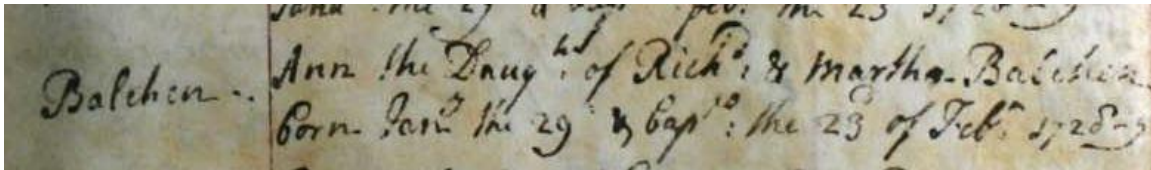 the 29 & bap the 23 1728-9
Balchen Ann the Daugtr of Richd: & Martha Balchen
born Janry the 29 & bapd: the 23 of Febry 1728-9